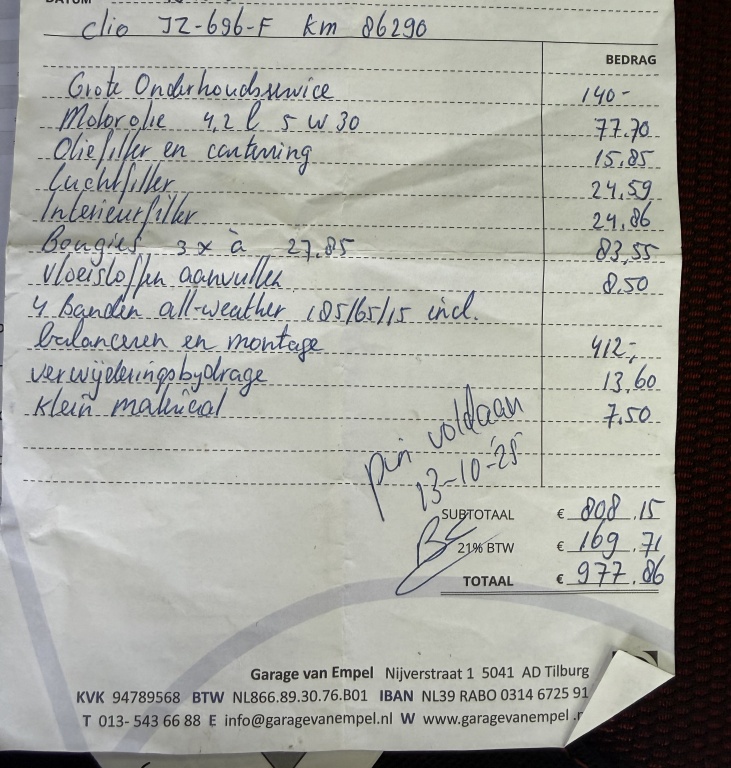 DATUM
Clio JZ-696-F Km 86290
BEDRAG
Grote Onderhoudsservice 140-
Motorolie 4,2 l 5 W 30 77.70
Oliefilter en carterring 15,85
Luchtfilter 24,59
Interieurfilter 24,86
Bougies 3x à 27,85 83,55
Vloeistoffen aanvullen 8,50
4 banden all-weather 185/65/15 incl.
balanceren en montage 412,-
verwijderingsbijdrage 13,60
Klein materiaal 7,50
pin voldaan
13-10-'25
SUBTOTAAL € 808,15
21% BTW € 169,71
TOTAAL € 977,86
Garage van Empel Nijverstraat 1 5041 AD Tilburg
KVK 94789568 BTW NL866.89.30.76.B01 IBAN NL39 RABO 0314 6725 91
T 013- 543 66 88 E info@garagevanempel.nl W www.garagevanempel